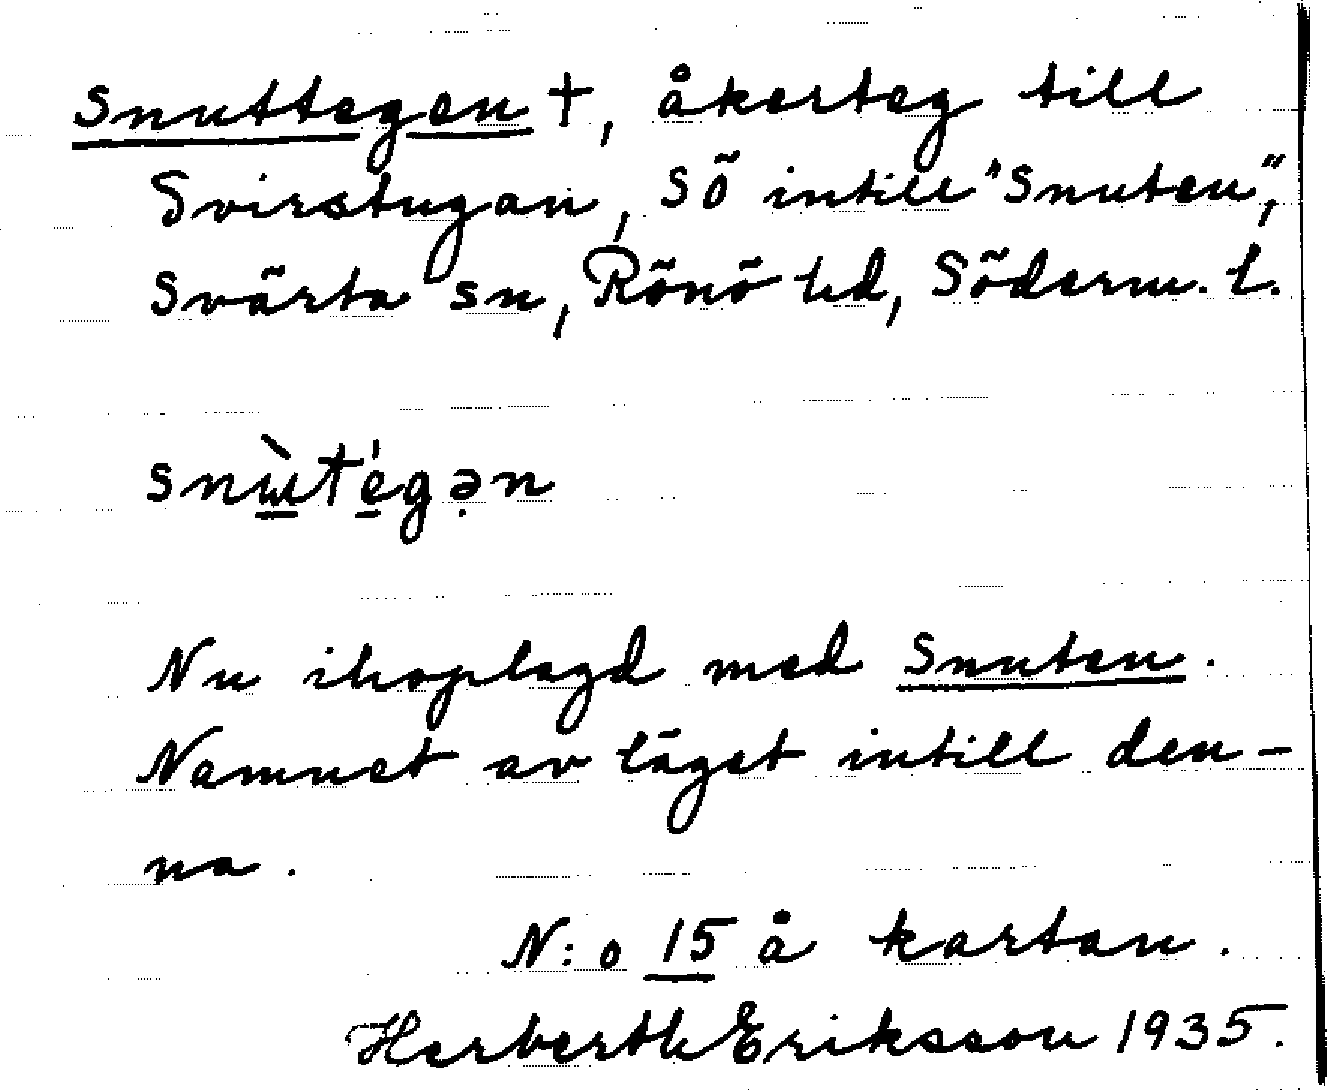 Snuttegen †, åkerteg till
Svirstugan, SÖ intill "Snuten",
Svärta sn, Rönö hd, Söderm. l.
snɯ̀tégən
Nu ihoplagd med Snuten.
Namnet av läget intill den-
na.
N:o 15 å kartan.
Herberth Eriksson 1935.